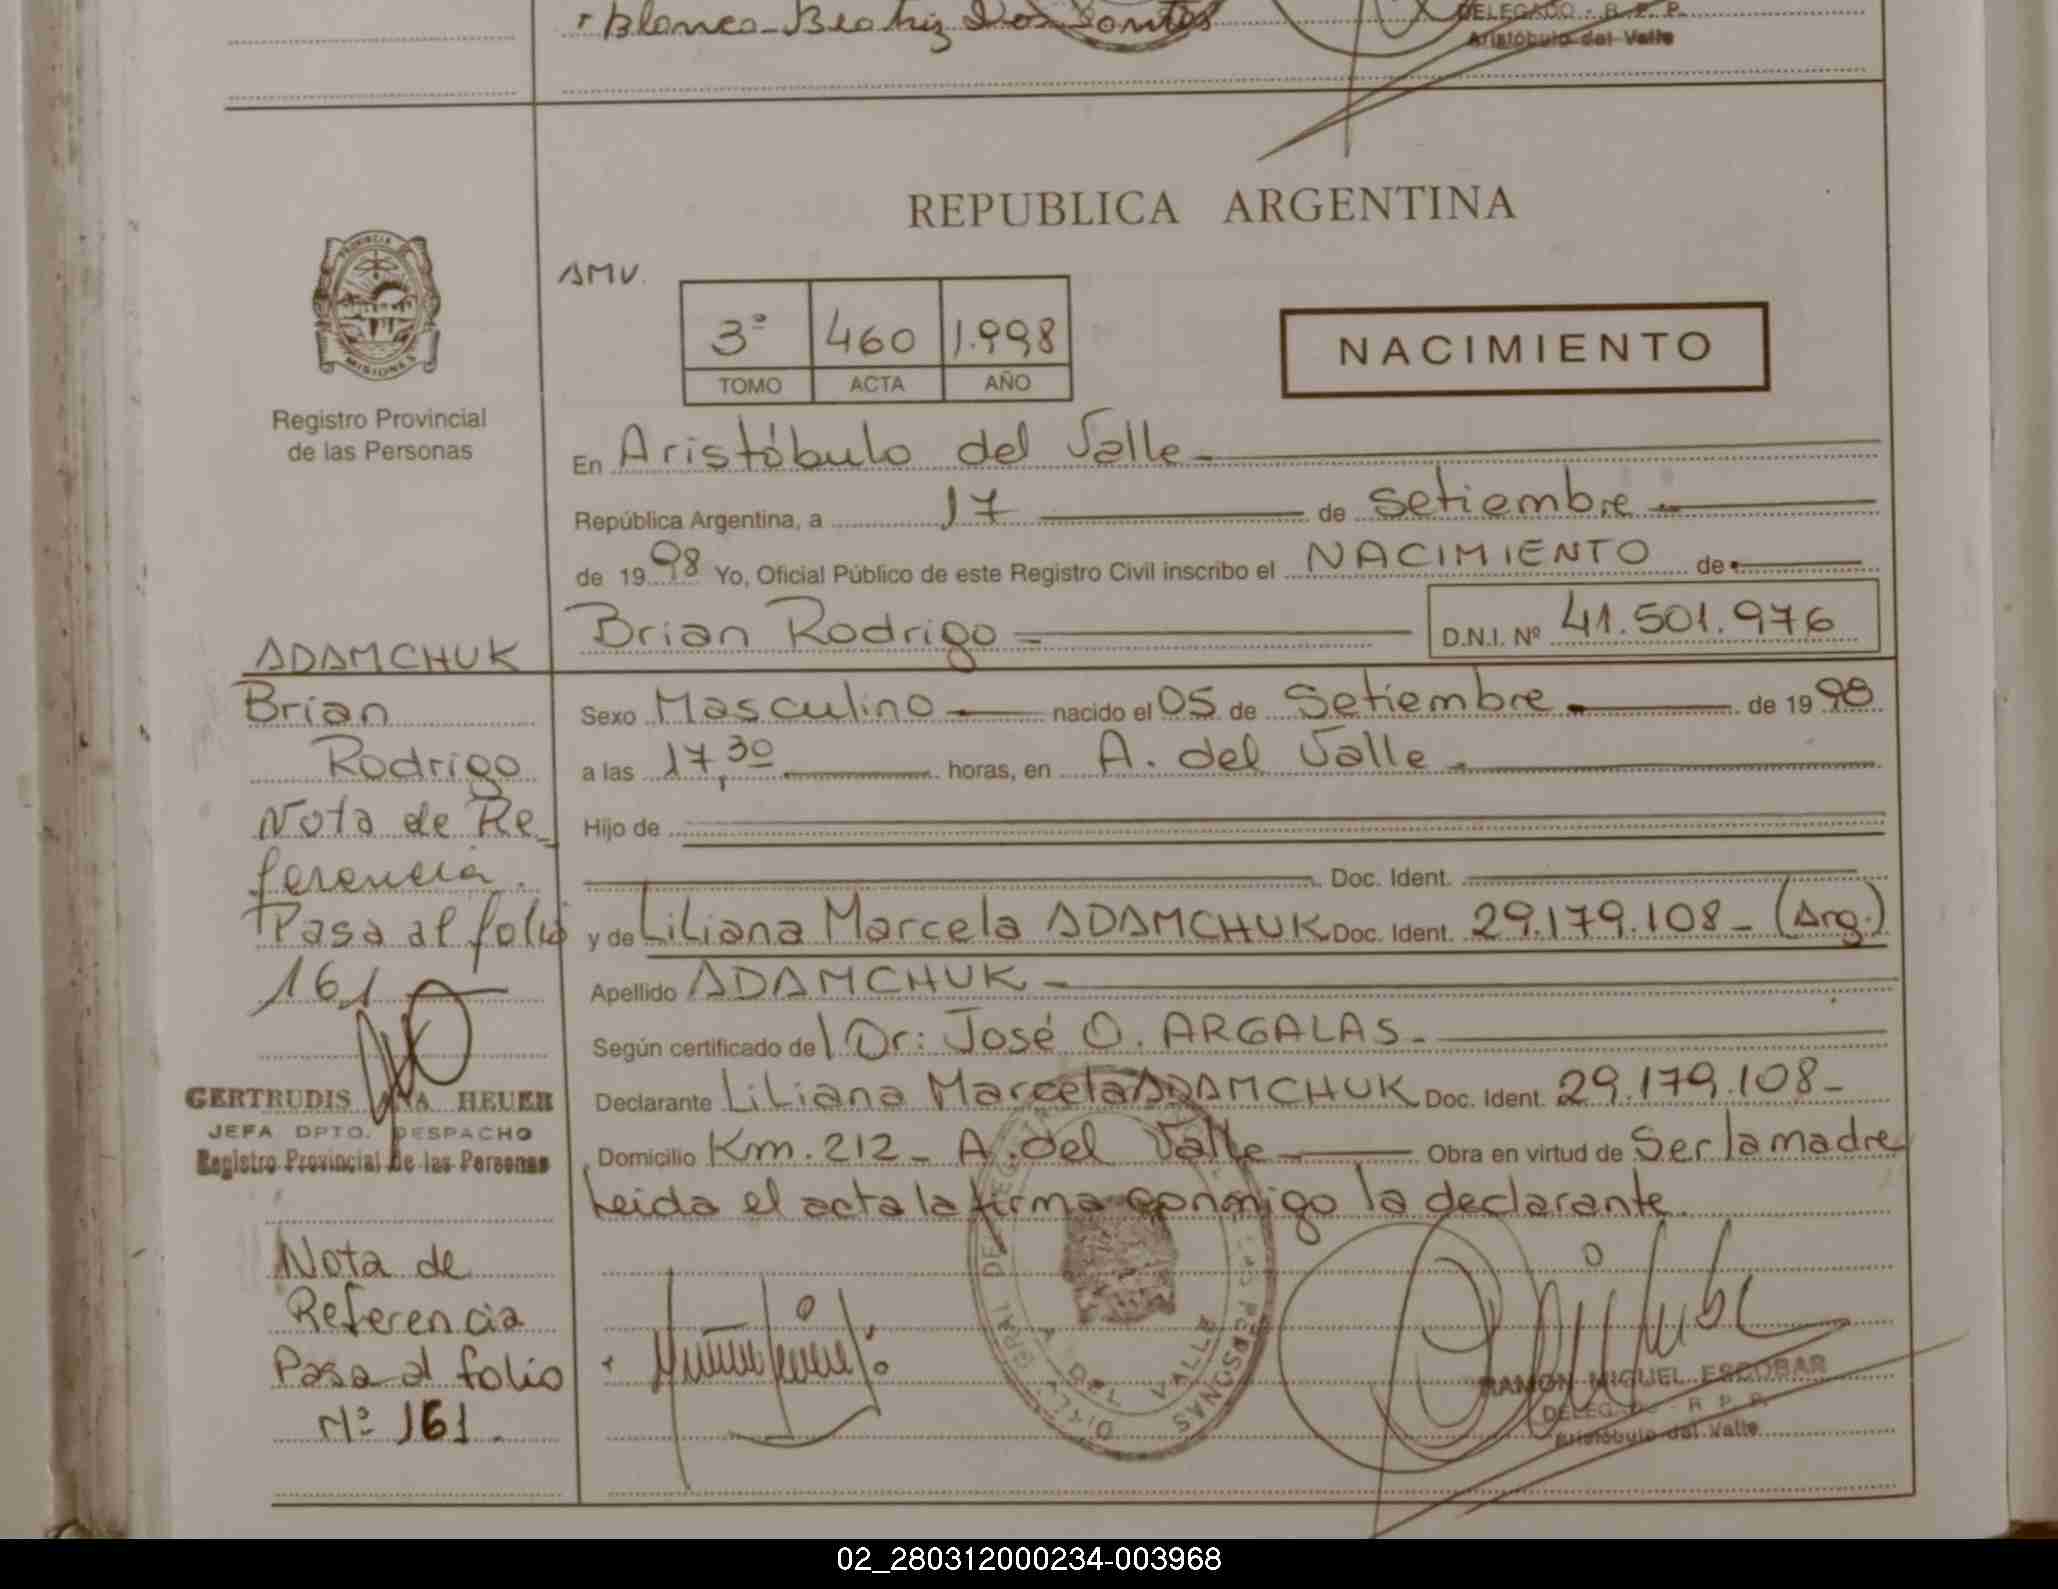 Blanca Beatriz Dos Santos
DELEGADO - R. P. P.
Aristóbulo del Valle
REPUBLICA ARGENTINA
PROVINCIA
MISIONES
Registro Provincial
de las Personas
AMV.
3º 460 1.998
TOMO ACTA AÑO
NACIMIENTO
En Aristóbulo del Valle
República Argentina, a 17 de Setiembre
de 1998 Yo, Oficial Público de este Registro Civil inscribo el NACIMIENTO de
Brian Rodrigo D.N.I. Nº 41.501.976
ADAMCHUK
Brian
Rodrigo
Nota de Re_
ferencia.
Pasa al folio
161
GERTRUDIS ANA HEUER
JEFA DPTO. DESPACHO
Registro Provincial de las Personas
Nota de
Referencia
Pasa al folio
Nº 161.
Sexo Masculino nacido el 05 de Setiembre de 1998
a las 17,30 horas, en A. del Valle
Hijo de
Doc. Ident.
y de Liliana Marcela ADAMCHUK Doc. Ident. 29.179.108_ (Arg.)
Apellido ADAMCHUK
Según certificado del Dr: José O. ARGALAS.
Declarante Liliana Marcela ADAMCHUK Doc. Ident. 29.179.108_
Domicilio Km. 212_ A. del Valle Obra en virtud de Ser la madre
Leida el acta la firma conmigo la declarante.
RAMON MIGUEL ESCOBAR
DELEGADO - R. P. P.
Aristóbulo del Valle
02_280312000234-003968